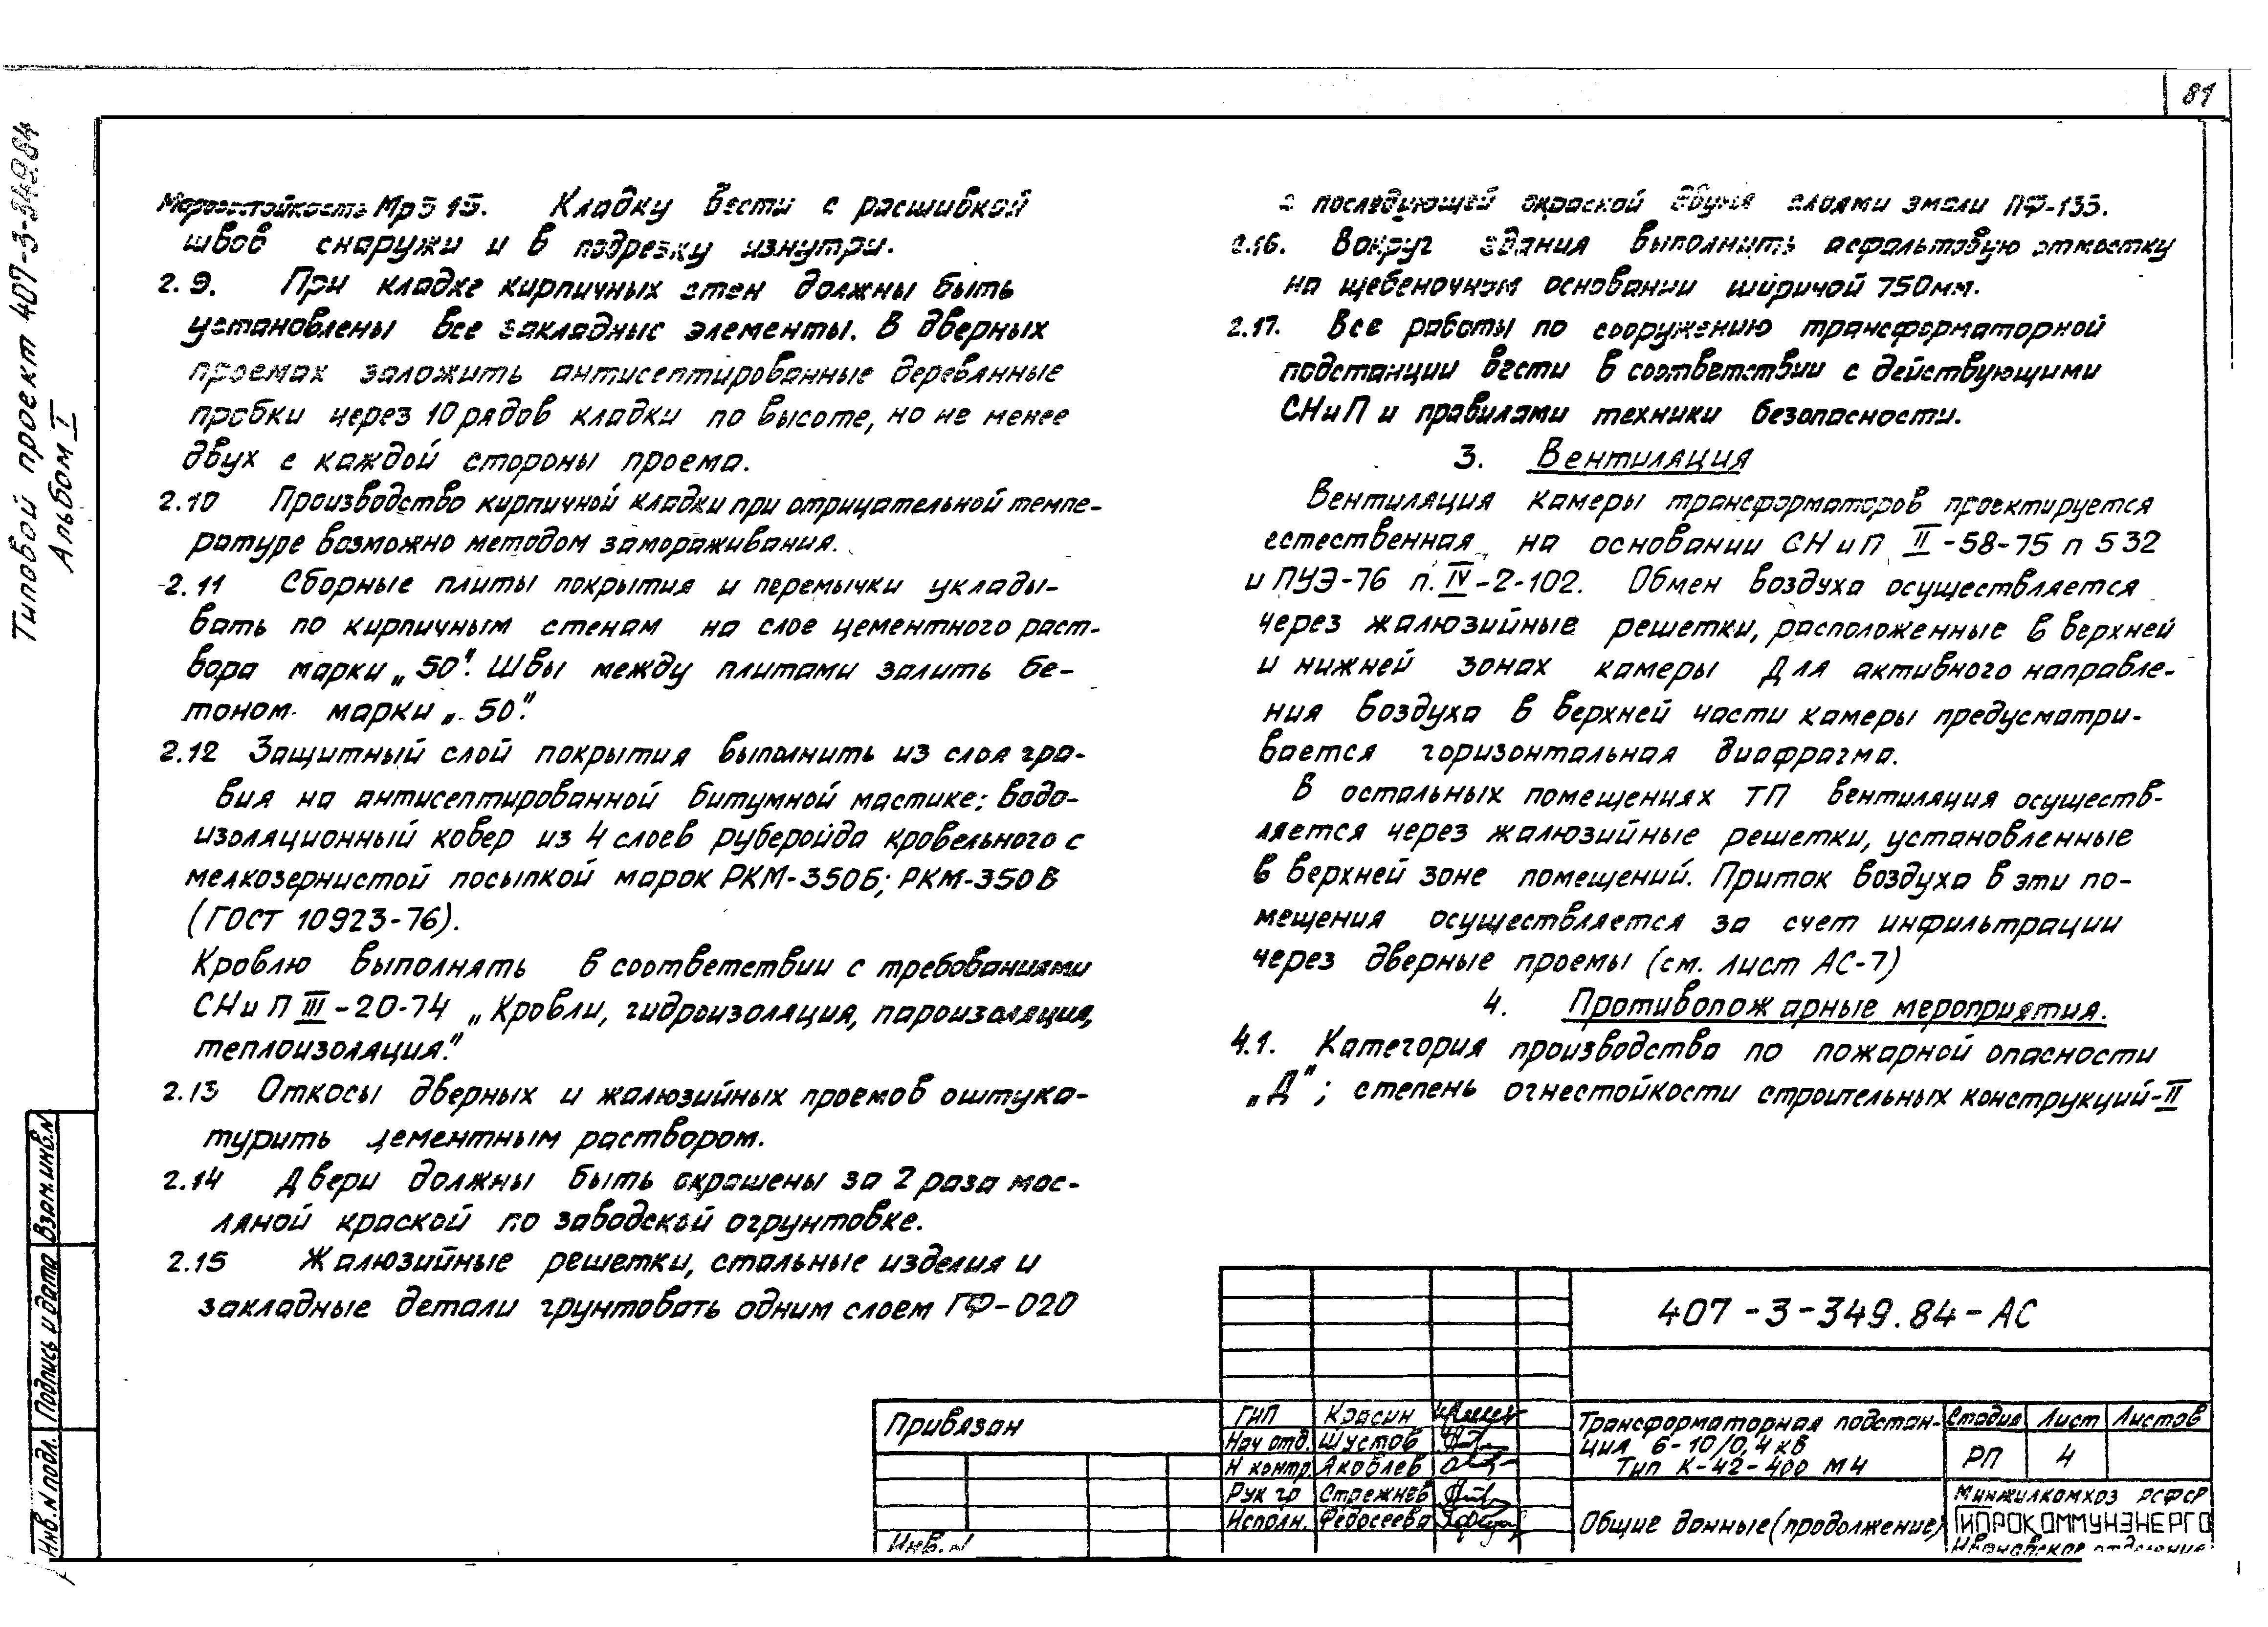 81
Типовой проект 407-3-349.84
Альбом I
Морозостойкость Мрз 15. Кладку вести с расшивкой
швов снаружи и в подрезку изнутри.
2.9. При кладке кирпичных стен должны быть
установлены все закладные элементы. В дверных
проемах заложить антисептированные деревянные
пробки через 10 рядов кладки по высоте, но не менее
двух с каждой стороны проема.
2.10 Производство кирпичной кладки при отрицательной темпе-
ратуре возможно методом замораживания.
2.11 Сборные плиты покрытия и перемычки уклады-
вать по кирпичным стенам на слое цементного раст-
вора марки „50". Швы между плитами залить бе-
тоном марки „50".
2.12 Защитный слой покрытия выполнить из слоя гра-
вия на антисептированной битумной мастике; водо-
изоляционный ковер из 4 слоев рубероида кровельного с
мелкозернистой посыпкой марок РКМ-350Б; РКМ-350В
(ГОСТ 10923-76).
Кровлю выполнять в соответствии с требованиями
СНиП III-20-74 „Кровли, гидроизоляция, пароизоляция,
теплоизоляция."
2.13 Откосы дверных и жалюзийных проемов оштука-
турить цементным раствором.
2.14 Двери должны быть окрашены за 2 раза мас-
ляной краской по заводской огрунтовке.
2.15 Жалюзийные решетки, стальные изделия и
закладные детали грунтовать одним слоем ГФ-020
с последующей окраской двумя слоями эмали ПФ-133.
2.16. Вокруг здания выполнить асфальтовую отмостку
на щебеночном основании шириной 750мм.
2.17. Все работы по сооружению трансформаторной
подстанции вести в соответствии с действующими
СНиП и правилами техники безопасности.
3. Вентиляция
Вентиляция камеры трансформаторов проектируется
естественная, на основании СНиП II-58-75 п 532
и ПУЭ-76 п. IV-2-102. Обмен воздуха осуществляется
через жалюзийные решетки, расположенные в верхней
и нижней зонах камеры Для активного направле-
ния воздуха в верхней части камеры предусматри-
вается горизонтальная диафрагма.
В остальных помещениях ТП вентиляция осуществ-
ляется через жалюзийные решетки, установленные
в верхней зоне помещений. Приток воздуха в эти по-
мещения осуществляется за счет инфильтрации
через дверные проемы (см. лист АС-7)
4. Противопожарные мероприятия.
4.1. Категория производства по пожарной опасности
„Д"; степень огнестойкости строительных конструкций-II
407-3-349.84-АС
Привязан
Инв.N
ГИП Красин
Нач отд. Шустов
Н контр. Яковлев
Рук гр Стрежнев
Исполн. Федосеева
Трансформаторная подстан-
ция 6-10/0,4 кв
Тип К-42-400 М4
Стадия Лист Листов
РП 4
Общие данные (продолжение)
Минжилкомхоз РСФСР
ГИПРОКОММУНЭНЕРГО
Ивановское отделение
Взам.инв.N
Подпись и дата
Инв.N подл.